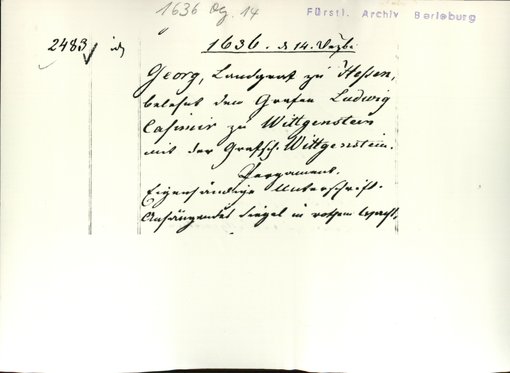 1636 Dez. 14
Fürstl. Archiv Berleburg
2483
1636. d 14. Dezbr
Georg, Landgraf zu Hessen,
belehnt den Grafen Ludwig
Casimir zu Wittgenstein
mit der Grafsch. Wittgenstein.
Pergament.
Eigenhändige Unterschrift.
Anhängendes Siegel in rothem Wachs.